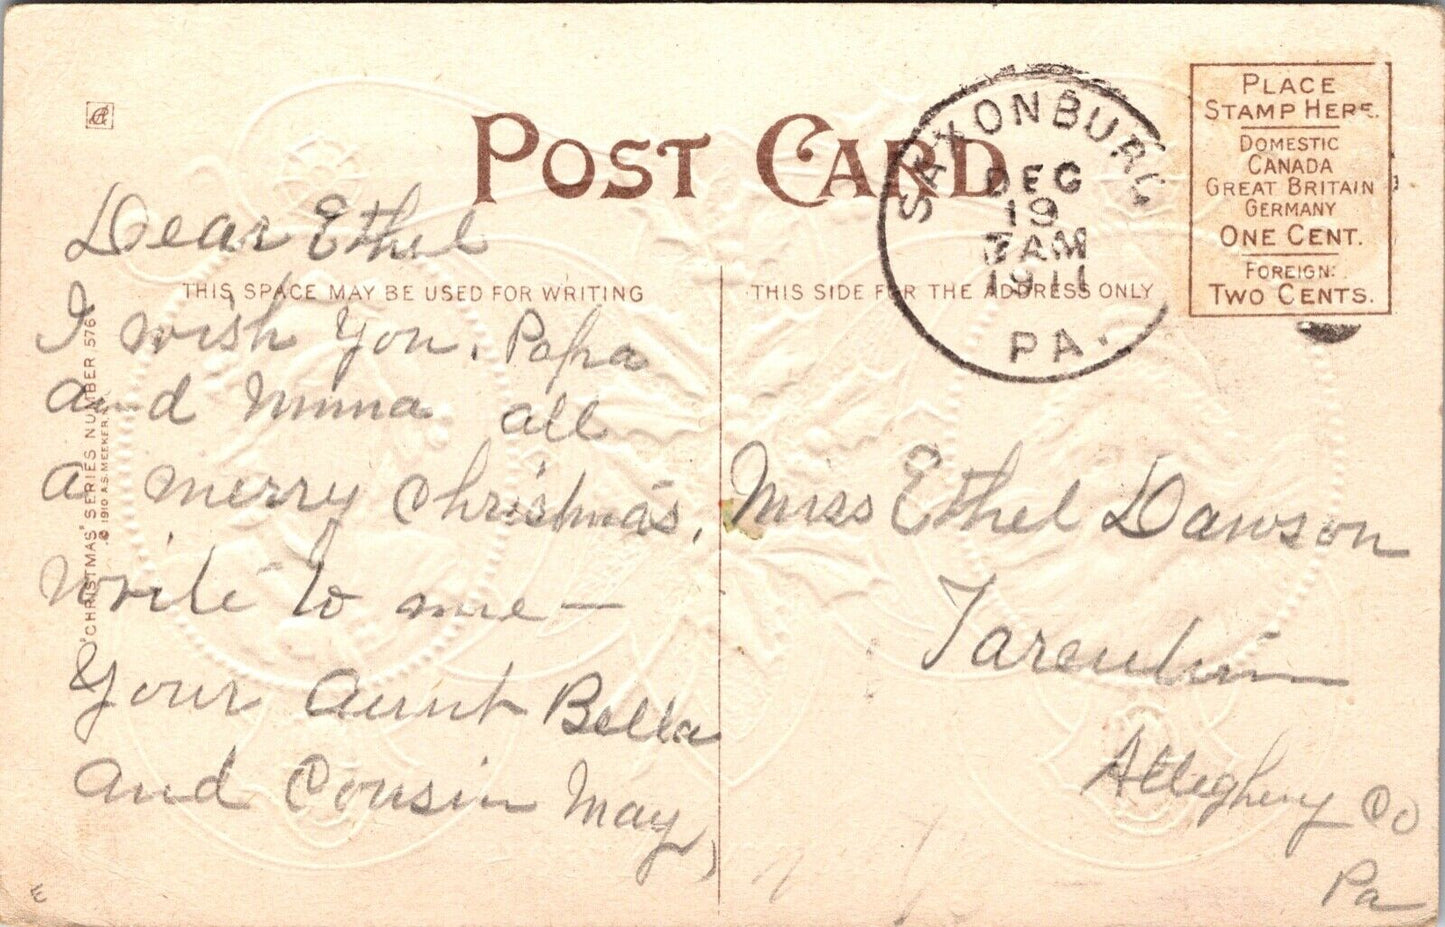 POST CARD
THIS SPACE MAY BE USED FOR WRITING
THIS SIDE FOR THE ADDRESS ONLY
SAXONBURG
DEC
19
7 AM
1911
PA.
PLACE
STAMP HERE.
DOMESTIC
CANADA
GREAT BRITAIN
GERMANY
ONE CENT.
FOREIGN:
TWO CENTS.
"CHRISTMAS" SERIES NUMBER 576
© 1910 A.S. MEEKER.
Dear Ethel
I wish you, Papa
and Mma all
a merry Christmas.
write to me —
Your Aunt Bella
and Cousin May,
Miss Ethel Dawson
Tarentum
Allegheny Co
Pa
E